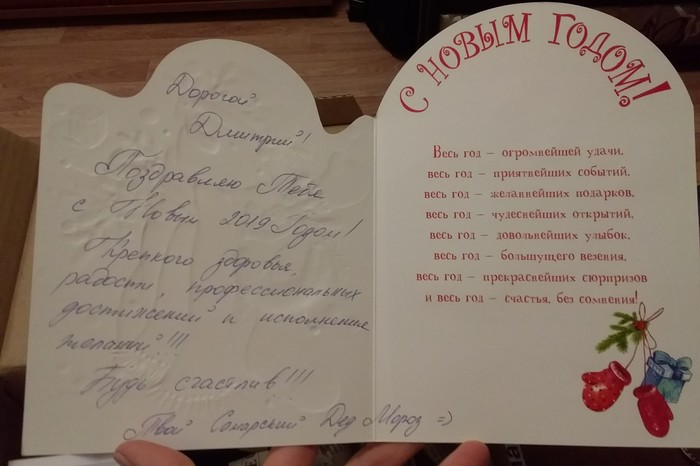 Дорогой
Дмитрий!
Поздравляю Тебя
с Новым 2019 Годом!
Крепкого здоровья,
радости, профессиональных
достижений и исполнения
желаний!!!
Будь счастлив!!!
Твой Самарский Дед Мороз =)
С НОВЫМ ГОДОМ!
Весь год – огромнейшей удачи,
весь год – приятнейших событий,
весь год – желаннейших подарков,
весь год – чудеснейших открытий,
весь год – довольнейших улыбок,
весь год – большущего везения,
весь год – прекраснейших сюрпризов
и весь год – счастья, без сомнения!